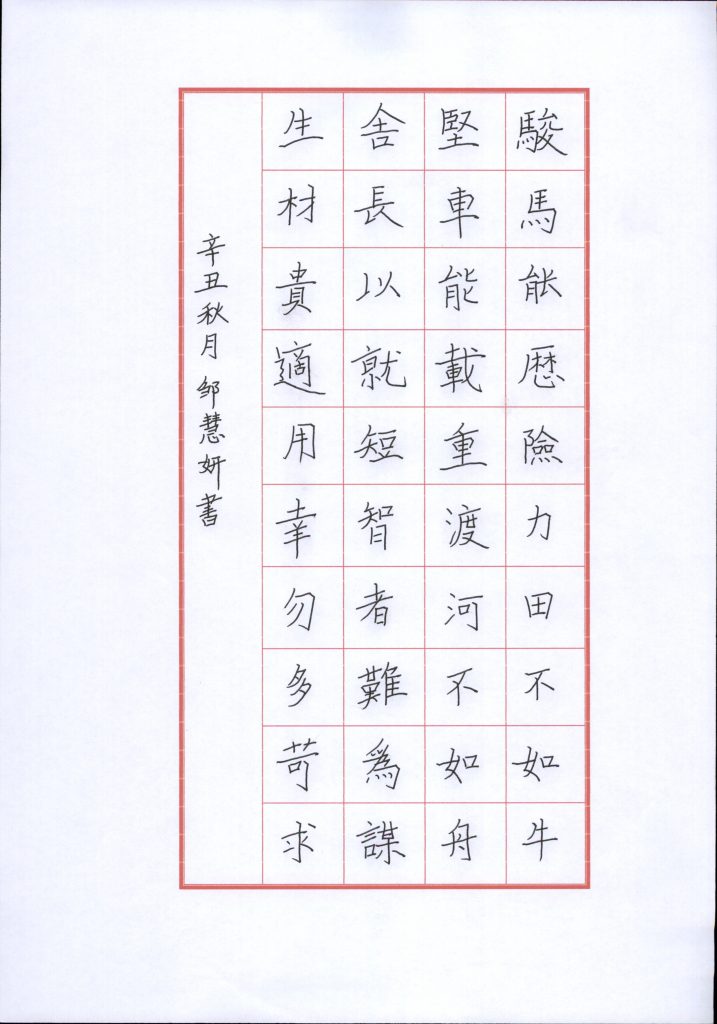 駿馬能歷險力田不如牛
堅車能載重渡河不如舟
舍長以就短智者難為謀
生材貴適用幸勿多苛求
辛丑秋月邹慧妍書